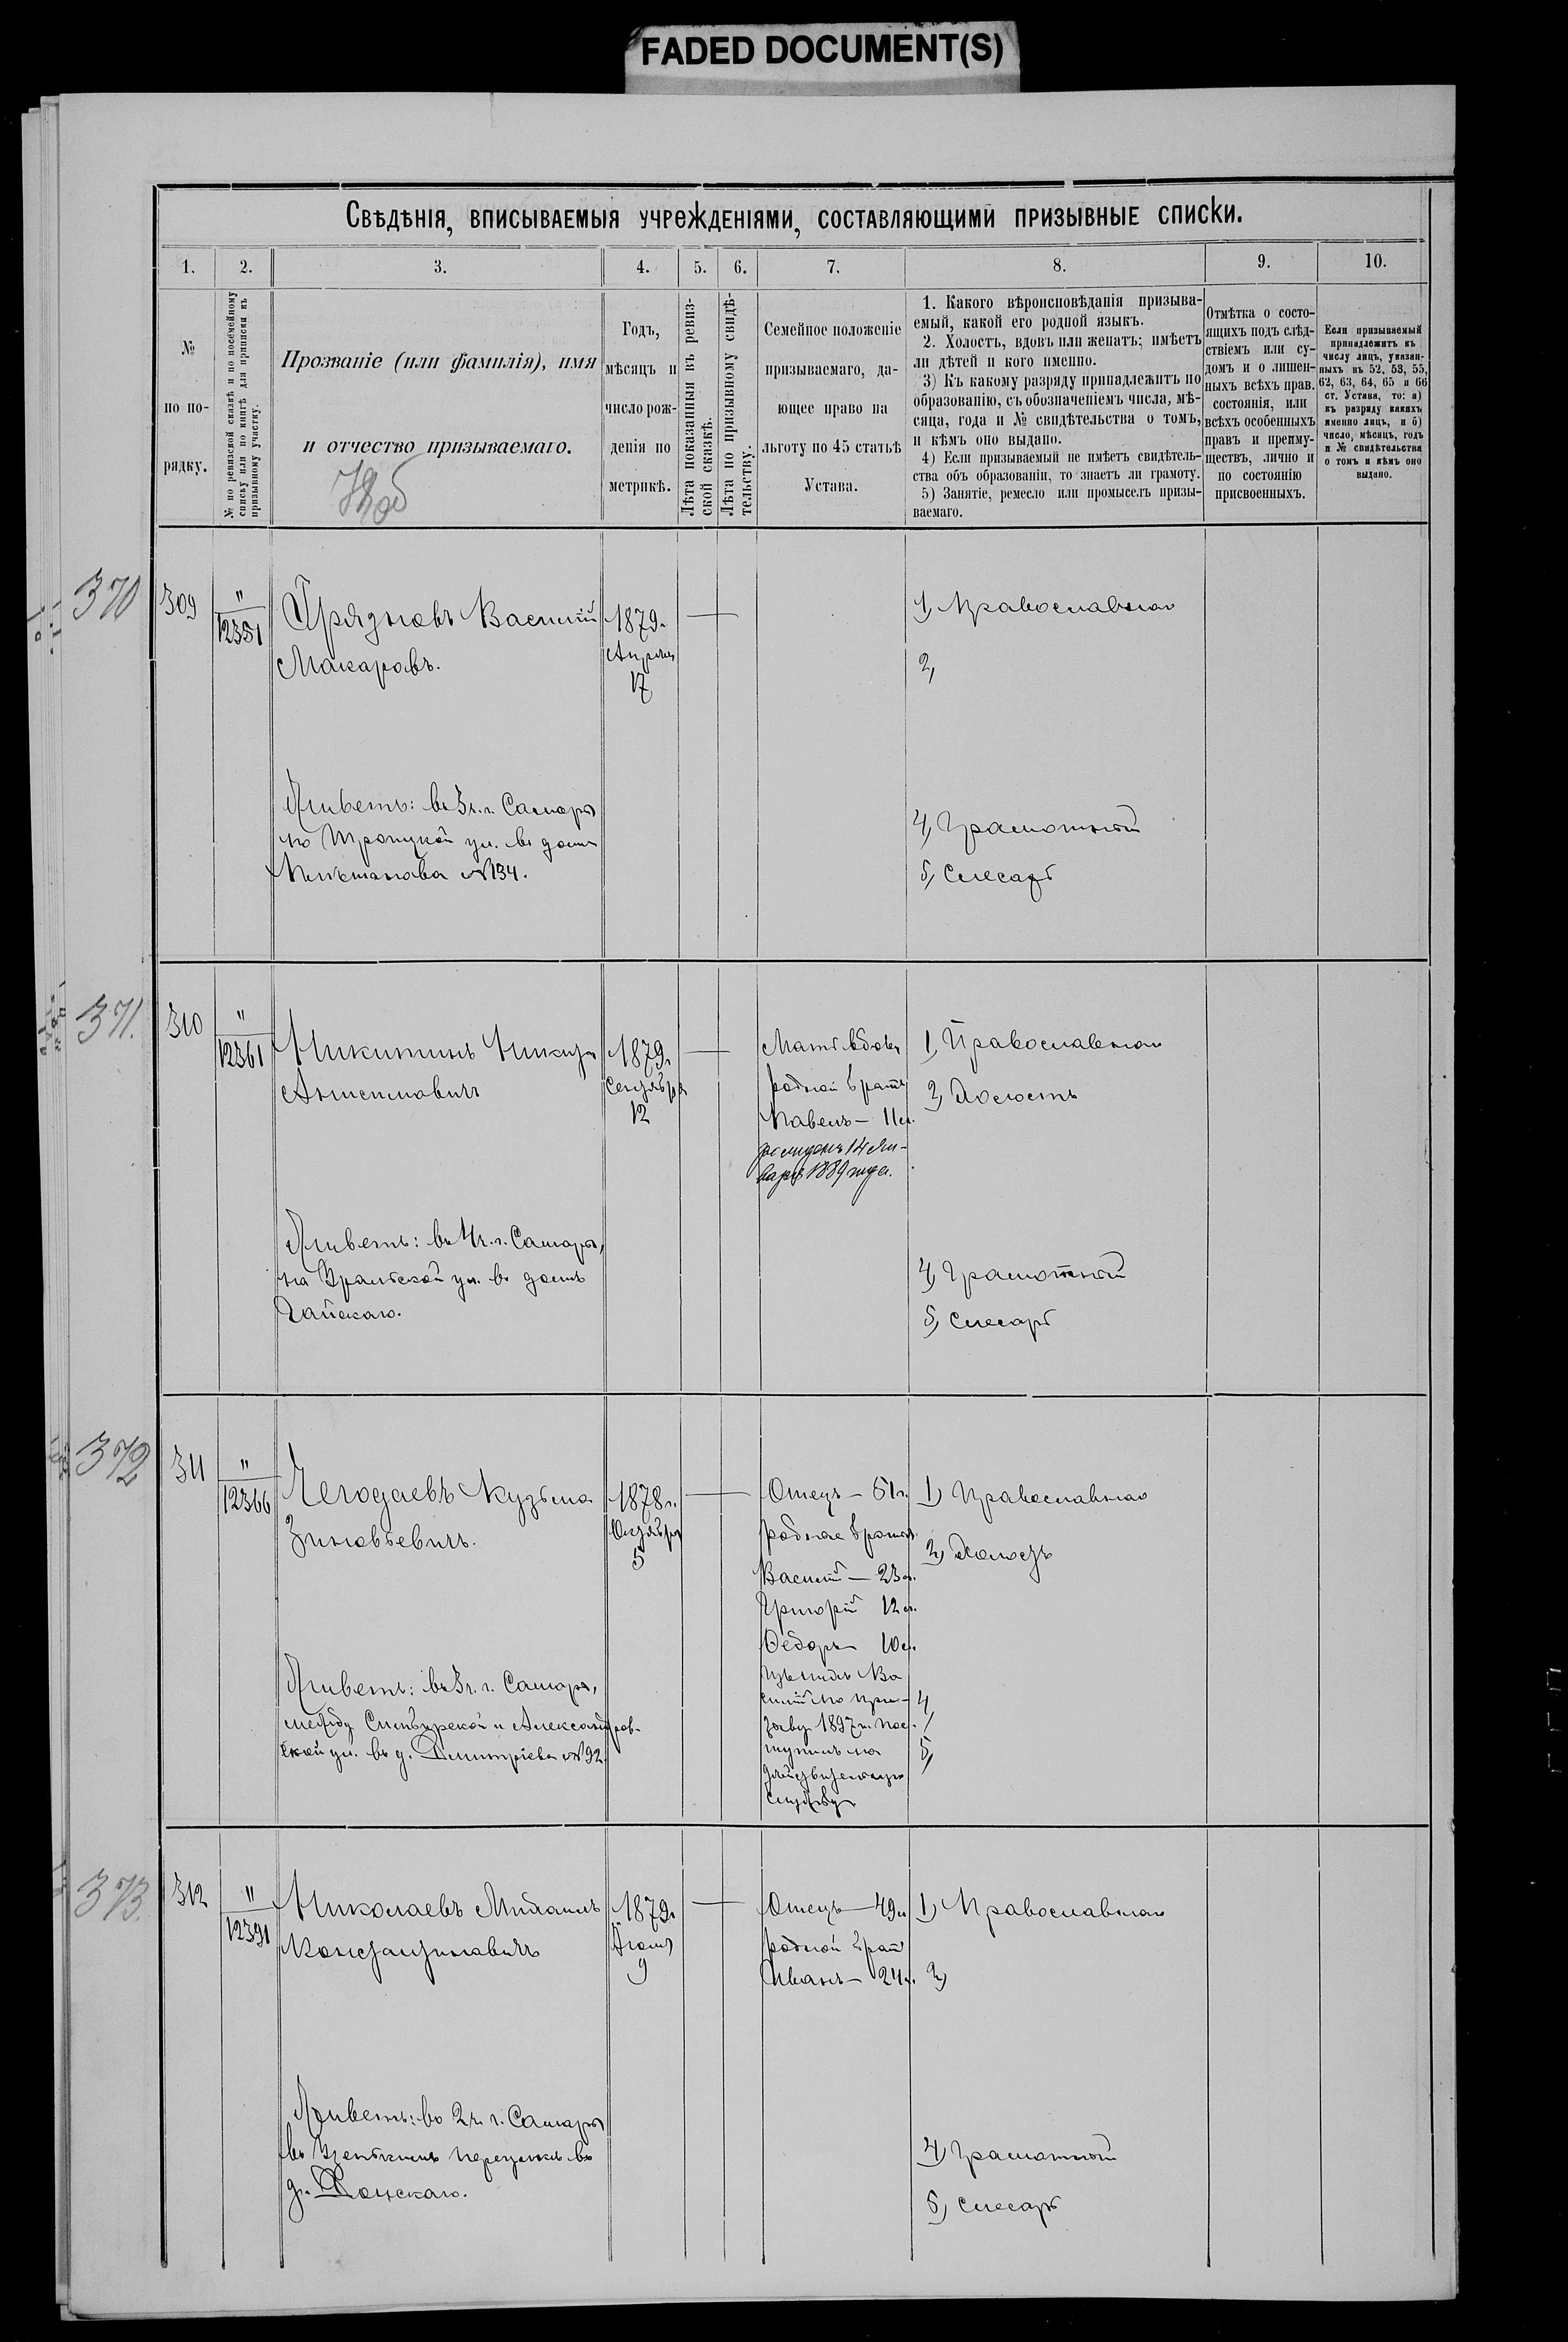 FADED DOCUMENT(S)
Свѣдѣнія, вписываемыя учрежденіями, составляющими призывные списки.
1. 2. 3. 4. 5. 6. 7. 8. 9. 10.
№
по по-
рядку.
№ по ревизской сказкѣ и по посемейному
списку или по книгѣ для приписки къ
призывному участку.
Прозваніе (или фамилія), имя
и отчество призываемаго.
Годъ,
мѣсяцъ и
число рож-
денія по
метрикѣ.
Лѣта показанныя въ ревиз-
ской сказкѣ.
Лѣта по призывному свидѣ-
тельству.
Семейное положеніе
призываемаго, да-
ющее право на
льготу по 45 статьѣ
Устава.
1. Какого вѣроисповѣданія призыва-
емый, какой его родной языкъ.
2. Холостъ, вдовъ или женатъ; имѣетъ
ли дѣтей и кого именно.
3) Къ какому разряду принадлежитъ по
образованію, съ обозначеніемъ числа, мѣ-
сяца, года и № свидѣтельства о томъ,
и кѣмъ оно выдано.
4) Если призываемый не имѣетъ свидѣтель-
ства объ образованіи, то знаетъ ли грамоту.
5) Занятіе, ремесло или промыселъ призы-
ваемаго.
Отмѣтка о состо-
ящихъ подъ слѣд-
ствіемъ или су-
домъ и о лишен-
ныхъ всѣхъ прав.
состоянія, или
всѣхъ особенныхъ
правъ и преиму-
ществъ, лично и
по состоянію
присвоенныхъ.
Если призываемый
принадлежитъ къ
числу лицъ, указан-
ныхъ въ 52, 53, 55,
62, 63, 64, 65 и 66
ст. Устава, то: а)
къ разряду какихъ
именно лицъ, и б)
число, мѣсяцъ, годъ
и № свидѣтельства
о томъ и кѣмъ оно
выдано.
370
309
"
12351
Грязновъ Василій
Макаровъ.
Живетъ: въ 3 ч. г. Самары
по Троицкой ул. въ домѣ
№ 134.
1879 г.
Апрѣля
17
1) Православнаго
2)
4) Грамотный
5) Слесарь
371.
310
"
12361
Никитинъ Никита
Анисимовичъ
Живетъ: въ 4 ч. г. Самары,
на Уральской ул. въ домѣ
Гайскаго.
1879 г.
Сентября
12
Мать вдова
родной братъ
Павелъ — 11 л.
14 Ян-
варя 1889 года.
1) Православнаго
2) Холостъ
4) Грамотный
5) Слесарь
372
311
"
12366
Чегодаевъ Кузьма
Зиновьевичъ.
Живетъ: въ 3 ч. г. Самары,
между Симбирской и Александров-
ской ул. въ д. Дмитріева № 92.
1878 г.
Октября
5
Отецъ — 51 г.
родные братья
Василій — 23 л.
Григорій 12 л.
Ѳедоръ 10 л.
изъ нихъ Ва
силій по при-
зыву 1897 г. пос-
тупилъ на
дѣйствительную
службу
1) Православнаго
2) Холостъ
4)
5)
373.
312
"
12391
Николаевъ Михаилъ
Константиновичъ
Живетъ: во 2 ч. г. Самары
въ переулкѣ въ
д. Донскаго.
1879 г.
Іюля
9
Отецъ — 49 л.
родной братъ
Иванъ — 24 л.
1) Православнаго
2)
4) Грамотный
5) Слесарь